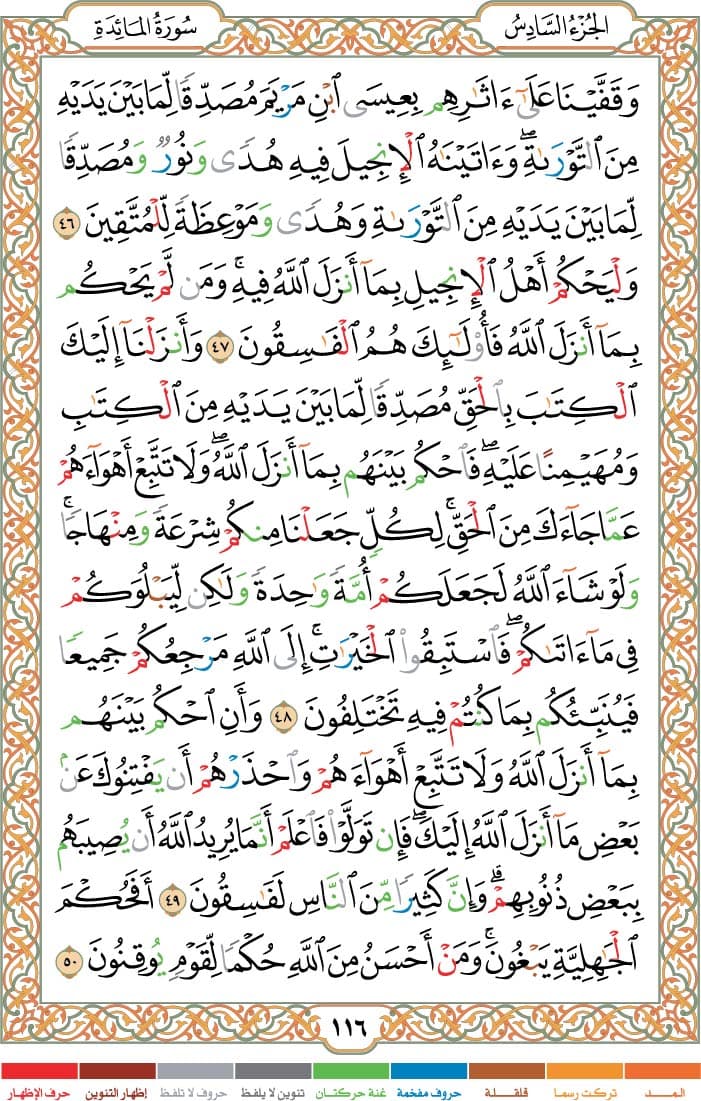 الجُزْءُ السَّادِسُ
سُورَةُ المَائِدَةِ
وَقَفَّيْنَا عَلَىٰٓ ءَاثَٰرِهِم بِعِيسَى ٱبْنِ مَرْيَمَ مُصَدِّقًا لِّمَا بَيْنَ يَدَيْهِ
مِنَ ٱلتَّوْرَىٰةِ ۖ وَءَاتَيْنَٰهُ ٱلْإِنجِيلَ فِيهِ هُدًى وَنُورٌ وَمُصَدِّقًا
لِّمَا بَيْنَ يَدَيْهِ مِنَ ٱلتَّوْرَىٰةِ وَهُدًى وَمَوْعِظَةً لِّلْمُتَّقِينَ ٤٦
وَلْيَحْكُمْ أَهْلُ ٱلْإِنجِيلِ بِمَآ أَنزَلَ ٱللَّهُ فِيهِ ۚ وَمَن لَّمْ يَحْكُم
بِمَآ أَنزَلَ ٱللَّهُ فَأُو۟لَٰٓئِكَ هُمُ ٱلْفَٰسِقُونَ ٤٧ وَأَنزَلْنَآ إِلَيْكَ
ٱلْكِتَٰبَ بِٱلْحَقِّ مُصَدِّقًا لِّمَا بَيْنَ يَدَيْهِ مِنَ ٱلْكِتَٰبِ
وَمُهَيْمِنًا عَلَيْهِ ۖ فَٱحْكُم بَيْنَهُم بِمَآ أَنزَلَ ٱللَّهُ ۖ وَلَا تَتَّبِعْ أَهْوَآءَهُمْ
عَمَّا جَآءَكَ مِنَ ٱلْحَقِّ ۚ لِكُلٍّ جَعَلْنَا مِنكُمْ شِرْعَةً وَمِنْهَاجًا ۚ
وَلَوْ شَآءَ ٱللَّهُ لَجَعَلَكُمْ أُمَّةً وَٰحِدَةً وَلَٰكِن لِّيَبْلُوَكُمْ
فِى مَآ ءَاتَىٰكُمْ ۖ فَٱسْتَبِقُوا۟ ٱلْخَيْرَٰتِ ۚ إِلَى ٱللَّهِ مَرْجِعُكُمْ جَمِيعًا
فَيُنَبِّئُكُم بِمَا كُنتُمْ فِيهِ تَخْتَلِفُونَ ٤٨ وَأَنِ ٱحْكُم بَيْنَهُم
بِمَآ أَنزَلَ ٱللَّهُ وَلَا تَتَّبِعْ أَهْوَآءَهُمْ وَٱحْذَرْهُمْ أَن يَفْتِنُوكَ عَنۢ
بَعْضِ مَآ أَنزَلَ ٱللَّهُ إِلَيْكَ ۖ فَإِن تَوَلَّوْا۟ فَٱعْلَمْ أَنَّمَا يُرِيدُ ٱللَّهُ أَن يُصِيبَهُم
بِبَعْضِ ذُنُوبِهِمْ ۗ وَإِنَّ كَثِيرًا مِّنَ ٱلنَّاسِ لَفَٰسِقُونَ ٤٩ أَفَحُكْمَ
ٱلْجَٰهِلِيَّةِ يَبْغُونَ ۚ وَمَنْ أَحْسَنُ مِنَ ٱللَّهِ حُكْمًا لِّقَوْمٍ يُوقِنُونَ ٥٠
١١٦
المــد
تركت رسما
قلقـلة
حروف مفخمة
غنة حركتان
تنوين لا يلفظ
حروف لا تلفظ
إظهار التنوين
حرف الإظهار